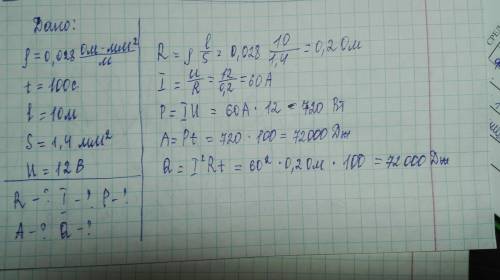 Дано:
ρ = 0,028 Ом·мм²/м
t = 100с
l = 10м
S = 1,4 мм²
U = 12 В
R - ? I - ? P - ?
A - ? Q - ?
R = ρ l/S = 0,028 10/1,4 = 0,2 Ом
I = U/R = 12/0,2 = 60А
P = IU = 60А · 12 = 720 Вт
A = Pt = 720 · 100 = 72000 Дж
Q = I²Rt = 60² · 0,2 Ом · 100 = 72000 Дж